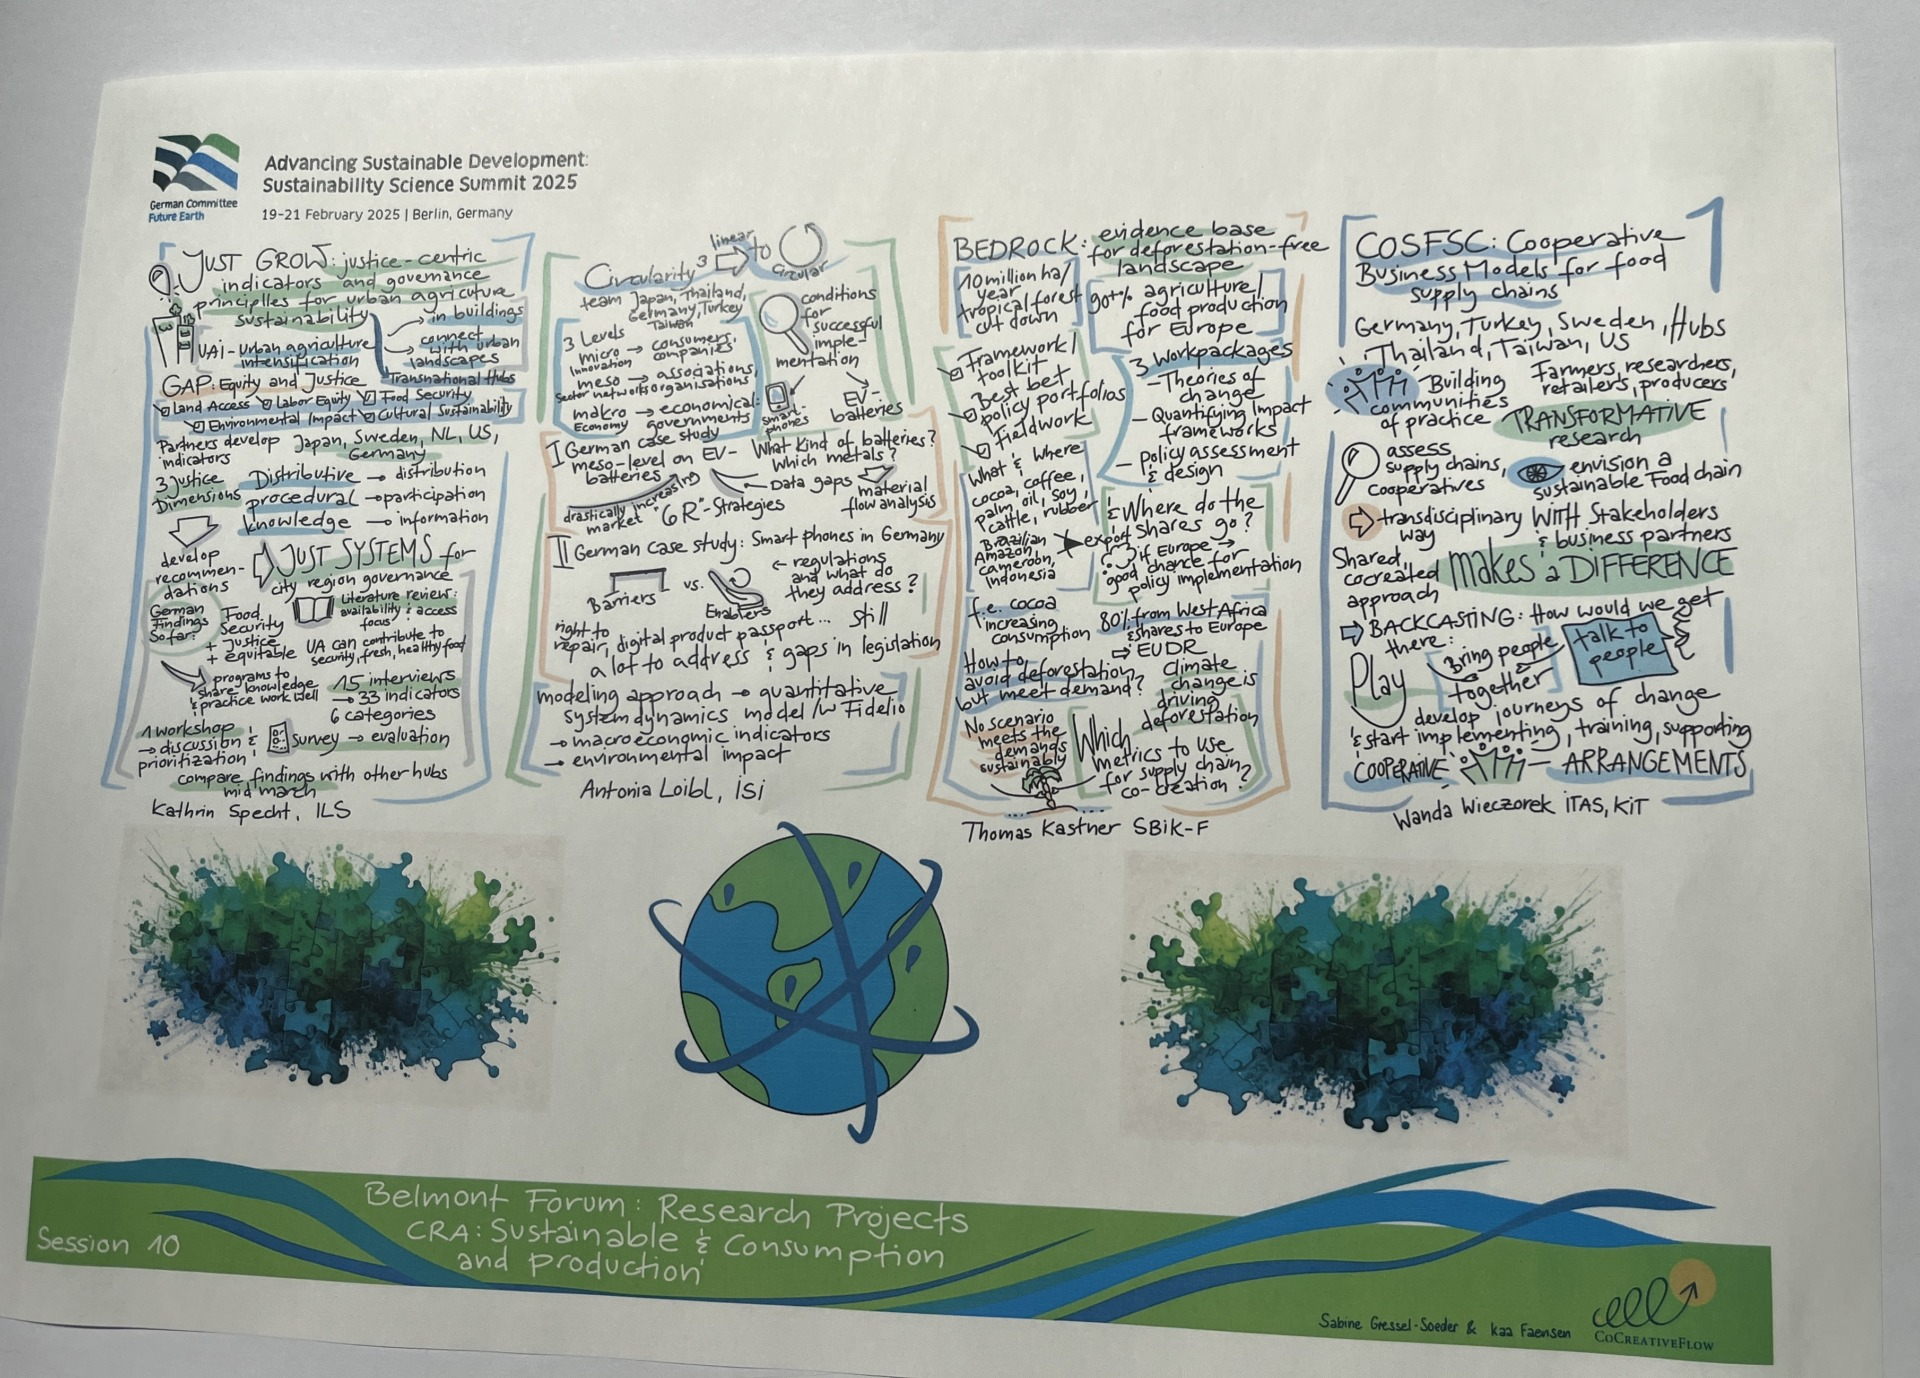 German Committee
Future Earth
Advancing Sustainable Development:
Sustainability Science Summit 2025
19-21 February 2025 | Berlin, Germany
JUST GROW: justice-centric
indicators and governance
principelles for urban agricuture
sustainability
UAI - urban agriculture
intensification
in buildings
connect
with urban
landscapes
Transnational Hubs
GAP: Equity and Justice
Land Access Labor Equity Food Security
Environmental Impact Cultural Sustainability
Partners develop
indicators
Japan, Sweden, NL, US,
Germany
3 Justice
Dimensions
Distributive → distribution
procedural → participation
knowledge → information
develop
recommen-
dations
JUST SYSTEMS for
city region governance
German
Findings
So far:
Food
Security
+ Justice
+ equitable
Literature review:
availability & access
focus
UA can contribute to
security, fresh, healthy food
programs to
share knowledge
& practice work well
15 interviews
→ 33 indicators
6 categories
1 workshop
→ discussion &
prioritization
survey → evaluation
compare findings with other hubs
mid march
Kathrin Specht, ILS
Circularity³
linear
to
circular
team Japan, Thailand,
Germany, Turkey
Taiwan
3 Levels
micro → consumers,
Innovation companies
meso → associations,
Sector networks organisations
makro → economical:
Economy governments
conditions
for
successful
imple-
mentation
smart-
phones
EV-
batteries
I German case study
meso-level on EV-
batteries
What kind of batteries?
Which metals?
Data gaps
material
flow analysis
drastically increasing
market
"6R"-Strategies
II German case study: Smart phones in Germany
Barriers
vs.
Enablers
← regulations
and what do
they address?
right to
repair, digital product passport... still
a lot to address & gaps in legislation
modeling approach → quantitative
system dynamics model /w Fidelio
→ macroeconomic indicators
→ environmental impact
Antonia Loibl, iSi
BEDROCK: evidence base
for deforestation-free
landscape
10 million ha/
year
tropical forest
cut down
90+% agriculture/
food production
for Europe
Framework/
toolkit
Best bet
policy portfolios
Fieldwork
3 Workpackages
- Theories of
change
- Quantifying Impact
frameworks
- policy assessment
& design
What & Where
cocoa, coffee,
palm oil, soy,
cattle, rubber
Brazilian
Amazon,
cameroon,
Indonesia
export
& Where do the
shares go?
if Europe →
good chance for
policy implementation
f.e. cocoa
increasing
consumption
80% from West Africa
& shares to Europe
⇒ EUDR
How to
avoid deforestation,
but meet demand?
Climate
change is
driving
deforestation
No scenario
meets the
demands
sustainably
Which
metrics to use
for supply chain?
co-creation?
Thomas Kastner SBiK-F
COSFSC: Cooperative
Business Models for food
supply chains
Germany, Turkey, Sweden, Hubs
Thailand, Taiwan, US
Building
communities
of practice
Farmers, researchers,
retailers, producers
TRANSFORMATIVE
research
assess
supply chains,
cooperatives
envision a
sustainable Food chain
transdisciplinary WITH Stakeholders
way & business partners
Shared,
cocreated
approach
makes a DIFFERENCE
BACKCASTING: How would we get
there:
Play
Bring people
&
together
talk to
people
develop journeys of change
& start implementing, training, supporting
COOPERATIVE — ARRANGEMENTS
Wanda Wieczorek iTAS, KiT
Session 10
Belmont Forum: Research Projects
CRA: Sustainable & Consumption
and production
Sabine Gressel-Soeder & Kaa Faensen
COCREATIVEFLOW